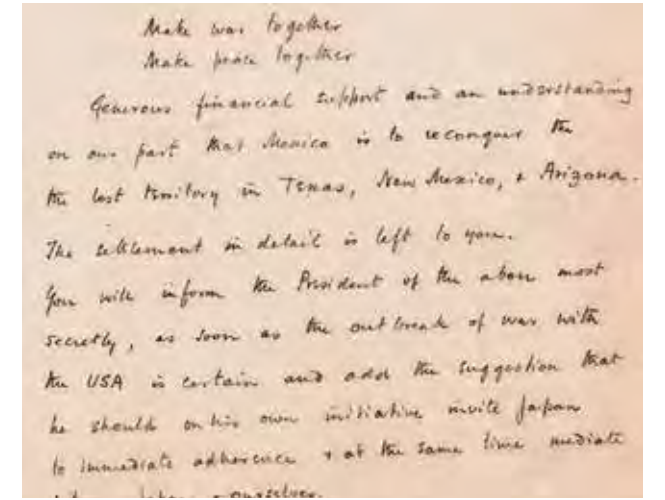 Make war together
Make peace together
Generous financial support and an understanding
on our part that Mexico is to reconquer the
the lost territory in Texas, New Mexico, & Arizona.
The settlement in detail is left to you.
You will inform the President of the above most
secretly, as soon as the outbreak of war with
the USA is certain and add the suggestion that
he should on his own initiative invite Japan
to immediate adherence & at the same time mediate
ourselves.